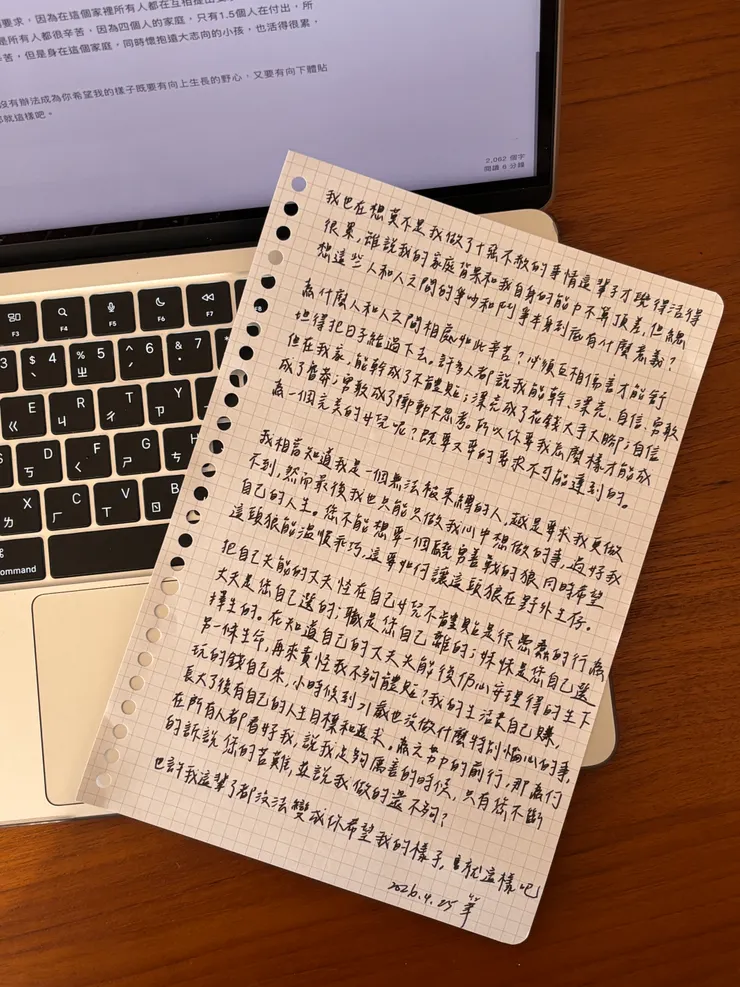 要求，因為在這個家裡所有人都在互相提出
是所有人都很辛苦，因為四個人的家庭，只有1.5個人在付出，所
辛苦，但是身在這個家庭，同時懷抱遠大志向的小孩，也活得很累，
沒有辦法成為你希望我的樣子既要有向上生長的野心，又要有向下體貼
都就這樣吧。
2,062 個字
閱讀 6 分鐘
我也在想莫不是我做了十惡不赦的事情這輩子才覺得活得
很累，誰說我的家庭背景和我自身的能力不算頂差，但總
想這些人和人之間的爭吵和鬥爭本身到底有什麼意義？
為什麼人和人之間相處如此辛苦？必須互相傷害才能舒
坦得把日子給過下去。許多人都說我能幹、漂亮、自信、勇敢
但在我家，能幹成了不體貼；漂亮成了花錢大手大腳；自信
成了驕傲；勇敢成了衝動不思考。所以你要我怎麼樣才能成
為一個完美的女兒呢？既要又要的要求不可能達到的。
我相當知道我是一個無法被束縛的人，越是要求我更做
不到，然而最後我也只能只做我心中想做的事，過好我
自己的人生。您不能想要一個驍勇善戰的狼同時希望
這頭狼能溫順乖巧，這要如何讓這頭狼在野外生存。
把自己失能的丈夫怪在自己女兒不體貼是很愚蠢的行為
丈夫是您自己選的；職是您自己離的；妹妹是您自己選
擇生的。在知道自己的丈夫失能後仍心安理得的生下
另一條生命，再來責怪我不夠體貼？我的生活費自己賺，
玩的錢自己來，小時候到21歲也沒做什麼特別惱心的事，
長大了後有自己的人生目標和追求。為之努力的前行，那為何
在所有人都看好我，說我足夠厲害的時候，只有您不斷
的訴說您的苦難，並說我做的還不夠？
也許我這輩子都沒法變成你希望我的樣子，但就這樣吧
2026.4.25
F3
F4
F5
F6
F7
3
$ 4
% 5 ㄓ
^ 6 ˊ
& 7 ˙
E ㄍ
R ㄐ
T ㄔ
Y ㄗ
D ㄎ
F ㄑ
G ㄕ
H
ㄏ
C ㄏ
V ㄒ
B ㄖ
command